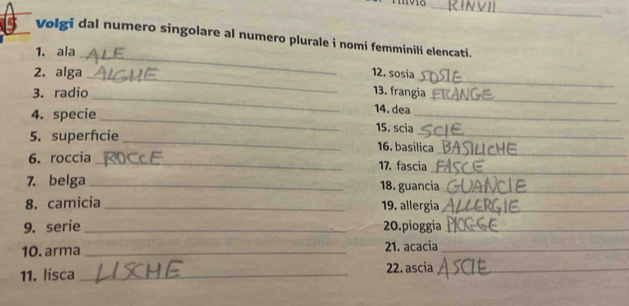 RINVII
15 Volgi dal numero singolare al numero plurale i nomi femminili elencati.
1. ala ALE
2. alga ALGHE
3. radio
4. specie
5. superficie
6. roccia ROCCE
7. belga
8. camicia
9. serie
10. arma
11. lisca LISCHE
12. sosia SOSIE
13. frangia FRANGE
14. dea
15. scia SCIE
16. basilica BASILICHE
17. fascia FASCE
18. guancia GUANCIE
19. allergia ALLERGIE
20. pioggia PIOGGE
21. acacia
22. ascia ASCIE